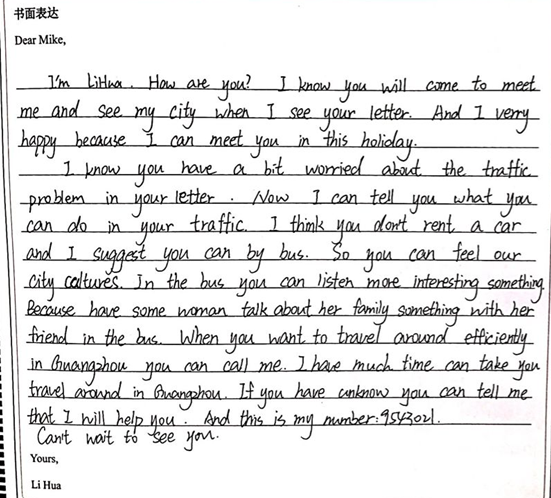 书面表达
Dear Mike,
I'm LiHua. How are you? I know you will come to meet
me and see my city when I see your letter. And I verry
happy because I can meet you in this holiday.
I know you have a bit worried about the traffic
problem in your letter. Now I can tell you what you
can do in your traffic. I think you don't rent a car
and I suggest you can by bus. So you can feel our
city caltures. In the bus you can listen more interesting something.
Because have some woman talk about her family something with her
friend in the bus. When you want to travel around efficiently
in Guangzhou you can call me. I have much time can take you
travel around in Guangzhou. If you have unknow you can tell me
that I will help you. And this is my number: 9543021.
Can't wait to see you.
Yours,
Li Hua